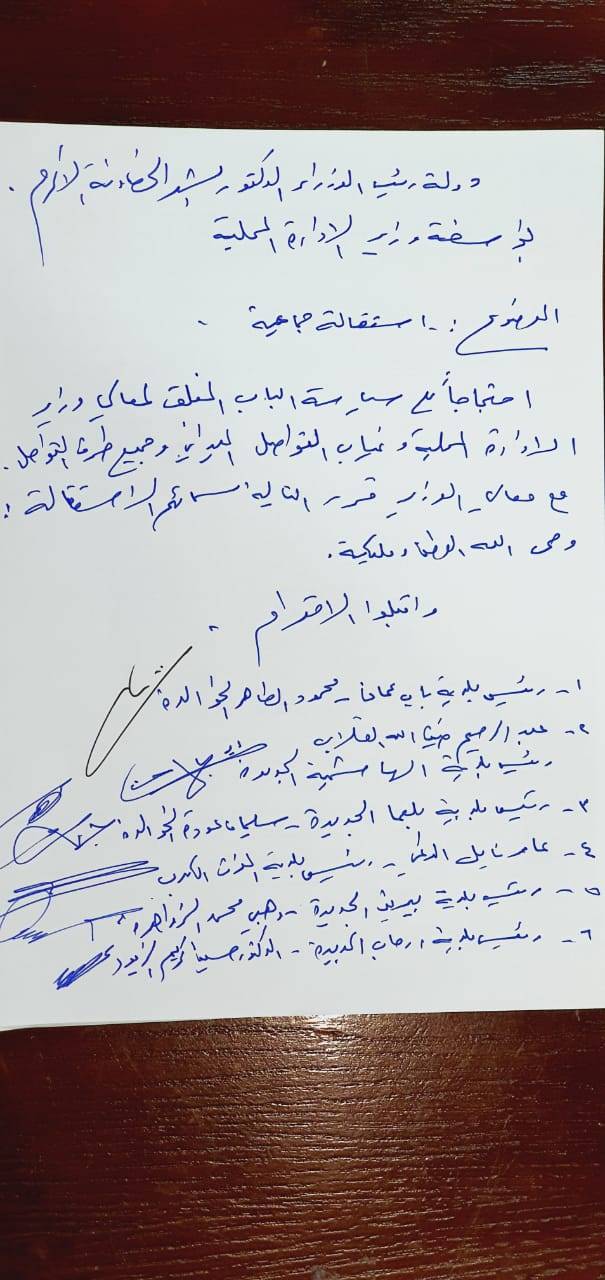 دولة رئيس الوزراء الدكتور بشر الخصاونة الأكرم .
بواسطة وزير الادارة المحلية
الموضوع :- استقالة جماعية .
احتجاجاً على سياسة الباب المغلق لمعالي وزير
الادارة المحلية وغياب التواصل الميداني وجميع طرق التواصل .
مع معالي الوزير قرر التاليه اسمائهم الاستقالة :
وحمى الله الوطن ومليكه .
واقبلوا الاحترام .
١- رئيس بلدية باب عمان - محمود الطاهر الخوالدة
٢- عبد الرحيم ضيف الله القلاب
رئيس بلدية الهاشمية الجديدة
٣- رئيس بلدية بلعما الجديدة - سليمان عودة الخوالدة
٤- عامر نايل - رئيس بلدية
٥- رئيس بلدية بيرين الجديدة - وهبي محمد الزواهرة
٦- رئيس بلدية ارحاب الجديدة - الدكتور حسين كريم الزيود